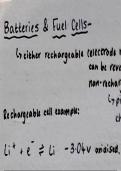 Batteries & Fuel Cells-
↳ either rechargeable (electrode
can be rev
non-rechar
↳ p
Rechargeable cell example:
ch
Li⁺ + e⁻ ⇌ Li -3.04V